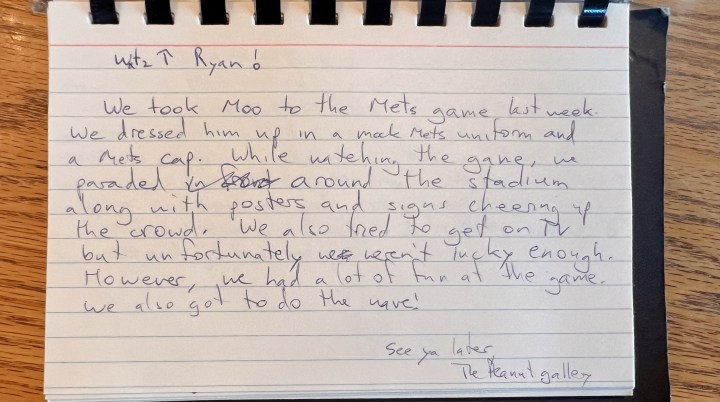 wst2 ↑ Ryan!
We took Moo to the Mets game last week.
We dressed him up in a mock Mets uniform and
a Mets cap. While watching the game, we
paraded around the stadium
along with posters and signs cheering up
the crowd. We also tried to get on TV
but unfortunately weren't lucky enough.
However, we had a lot of fun at the game.
We also got to do the wave!
See ya later,
The Peanut gallery